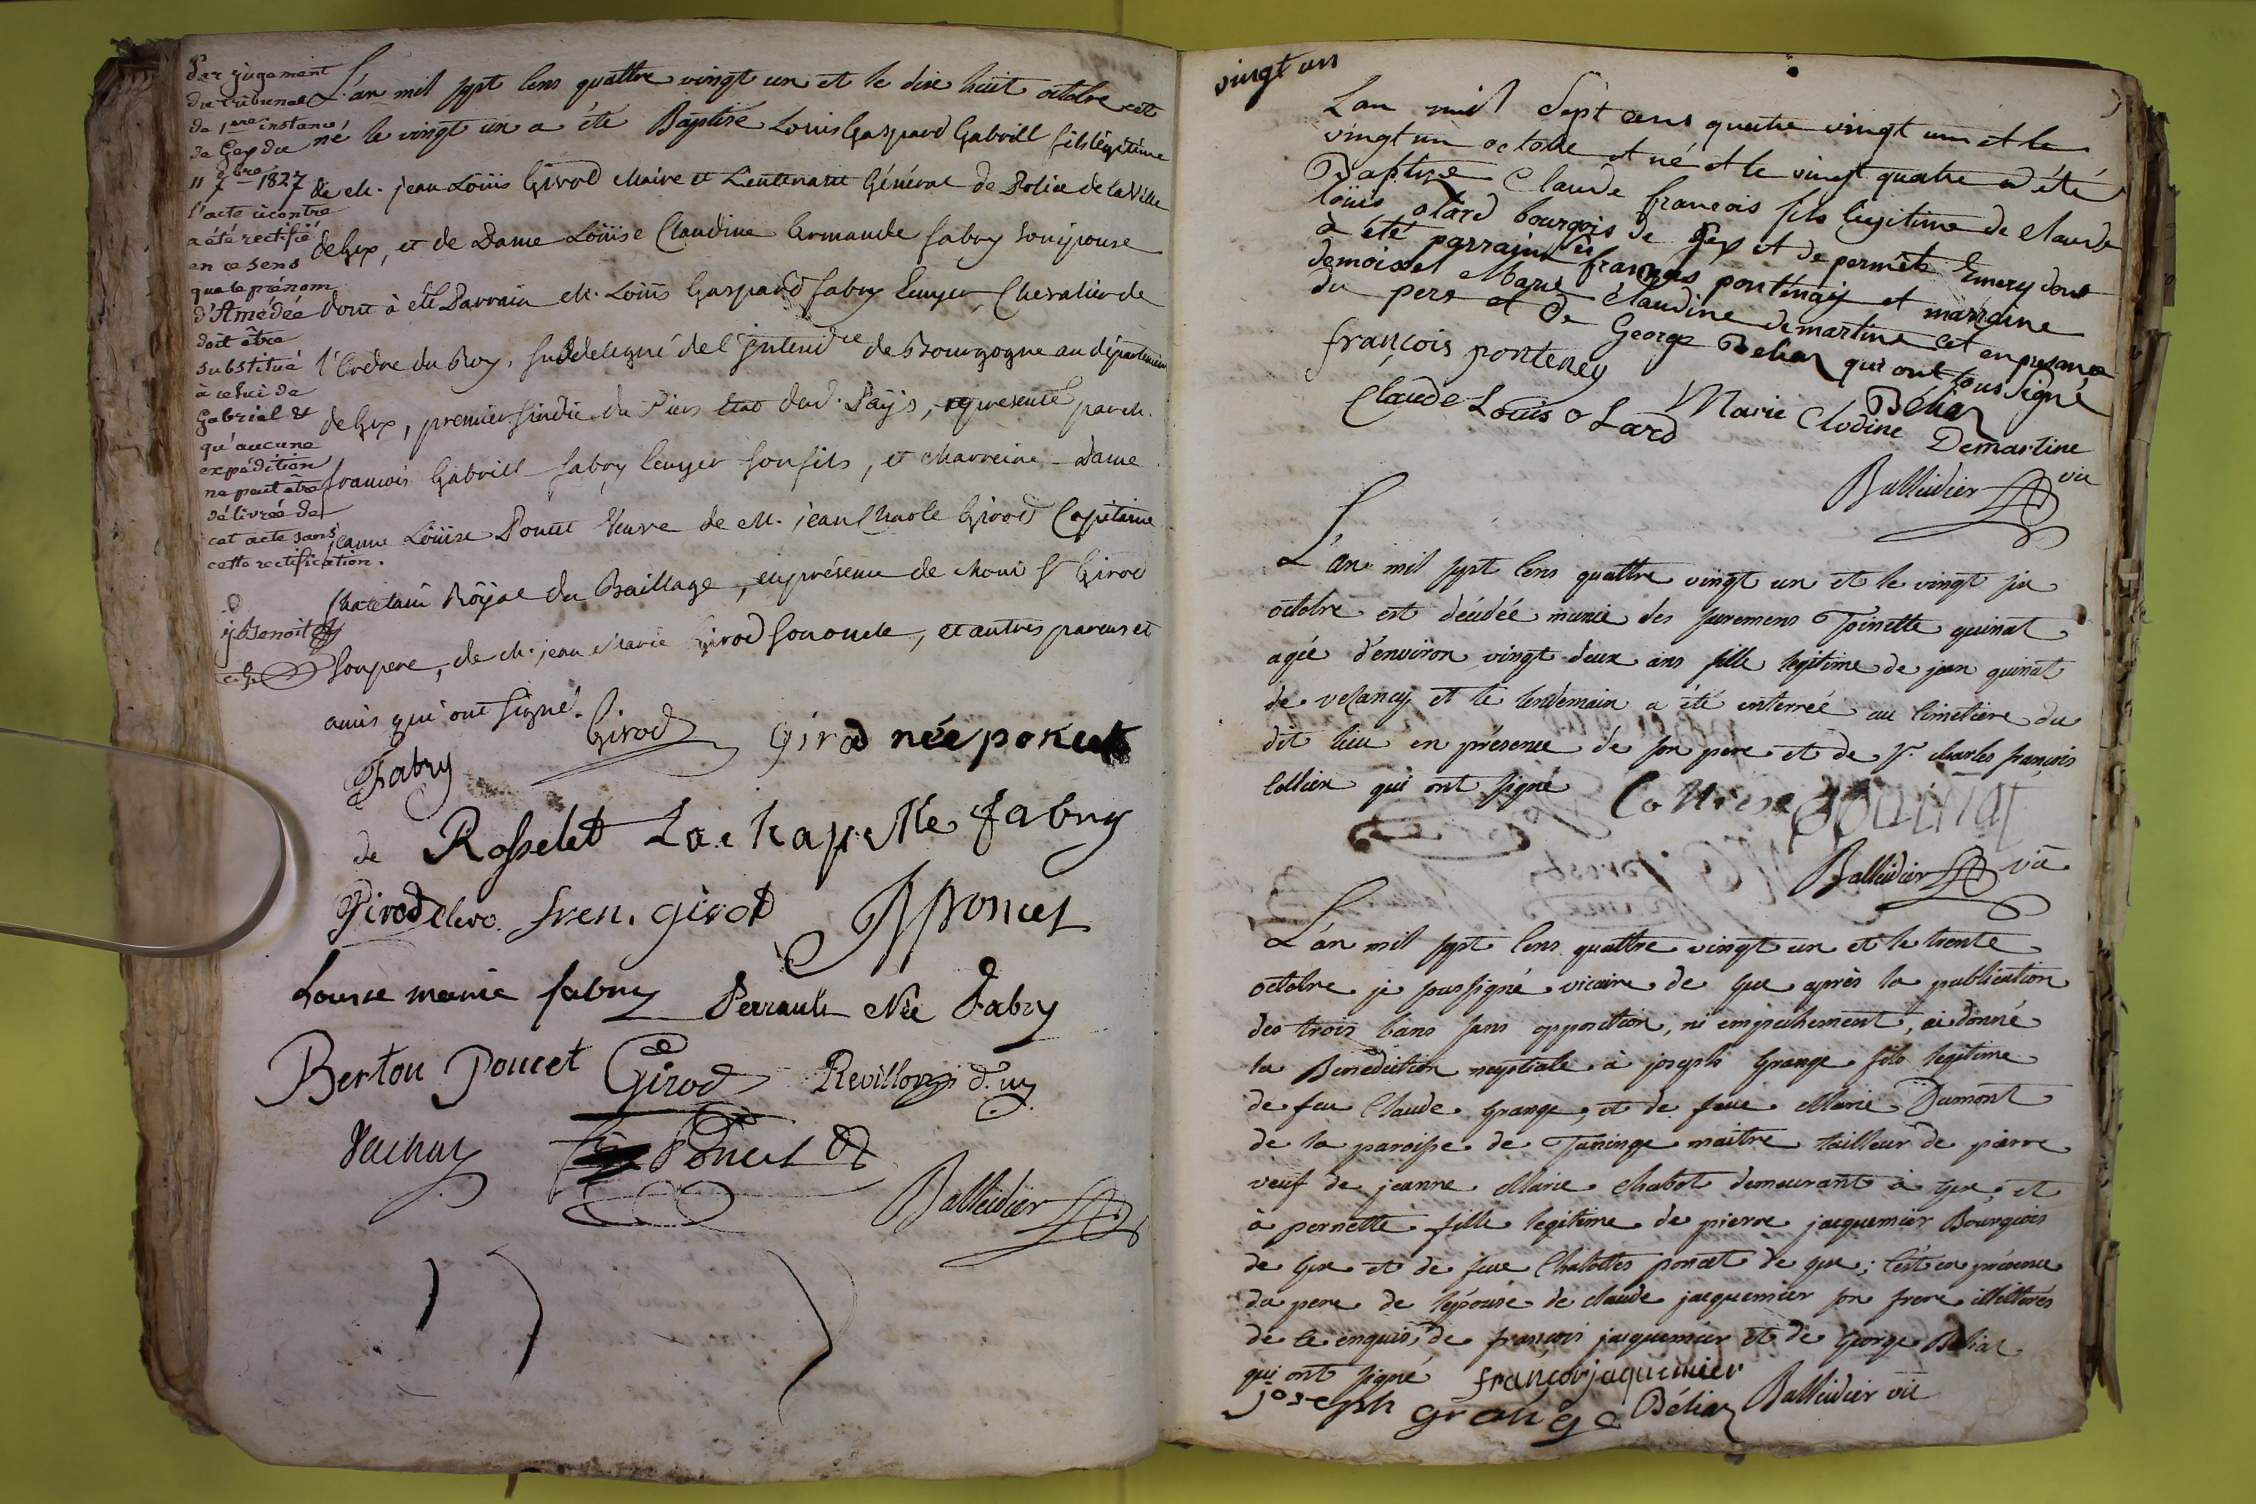 Par jugement
du tribunal
de 1ere instance
de Gex du
11 7bre 1827
l'acte ci contre
a été rectifié
en ce sens
que le prénom
d'Amédée
doit être
substitué
à celui de
Gabriel et
qu'aucune
expédition
ne peut être
délivrée de
cet acte sans
cette rectification.
jBenoit
L'an mil sept cens quattre vingt un et le dix huit octobre est
né le vingt un a été Baptisé Loüis Gaspard Gabriel fils légitime
de M. jean Loüis Girod Maire et Lieutenant Général de Police de la Ville
de Gex, et de Dame Loüise Claudine Armande fabry son épouse
dont à été Parrain M. Loüis Gaspard fabry Ecuyer, Chevalier de
l'Ordre du Roy, subdelegué de l'Intendce de Bourgogne au département
de Gex, premier sindic du Tiers Etat dud. Païs, représenté par M.
francois Gabriel fabry Ecuyer son fils, et Marreine Dame
jeanne Loüise Poncet Veuve de M. jean Charle Girod Capitaine
Chatelain Röyal du Bailliage, en présence de Sr Girod
son pere, de M. jean Marie Girod son oncle, et autres parens et
amis qui ont signé.
Girod Girod née poncet
Fabry
de Rosselet Lachapelle Fabry
Girod fren. girod Poncet
Louise marie fabry Perrault Née Fabry
Berton Poncet Girod Revillon
Vachat Poncet
Balleidier
vingt un
L'an mil Sept cens quatre vingt un et le
vingt un octobre est né et le vingt quatre a été
Baptisé Claude francois fils legitime de claude
loüis olard bourgois de Gex et de pernete Emery dont
à été parrain sr francois pontenay et marraine
demoisel Marie claudine demartine cet en presance
du pere et de George Beliaz qui ont tous signé
françois ponteney Béliaz
Claude Louis oLard Marie Clodine Demartine
Balleidier vic
L'an mil sept cens quattre vingt un et le vingt six
octobre est décédée munie des sacremens Toinette quinat
agée d'environ vingt deux ans fille legitime de jean quinat
de vesancy et le lendemain a été enterrée au cimetière du
dit lieu en présence de son pere et de Sr. charles françois
Collier qui ont signé Collier quinat
Balleidier vic
L'an mil sept cens quattre vingt un et le trente
octobre je soussigné vicaire de gex après la publication
des trois bans sans opposition, ni empechement, ai donné
la Benediction nuptiale à joseph Grange fils legitime
de feu Claude Grange, et de feue Marie Dumont
de la paroisse de Taninge maitre tailleur de pierre
veuf de jeanne Marie chabot demeurant à Gex; et
à pernette fille legitime de pierre jacquemier Bourgeois
de Gex et de feue Chalottes poncet de gex; c'est en présence
du pere de l'épouse de claude jacquemier son frere illitterés
de ce enquis, de françois jacquemier et de George Béliaz
qui ont signé françois jaquemier
joseph grange Béliaz Balleidier vic